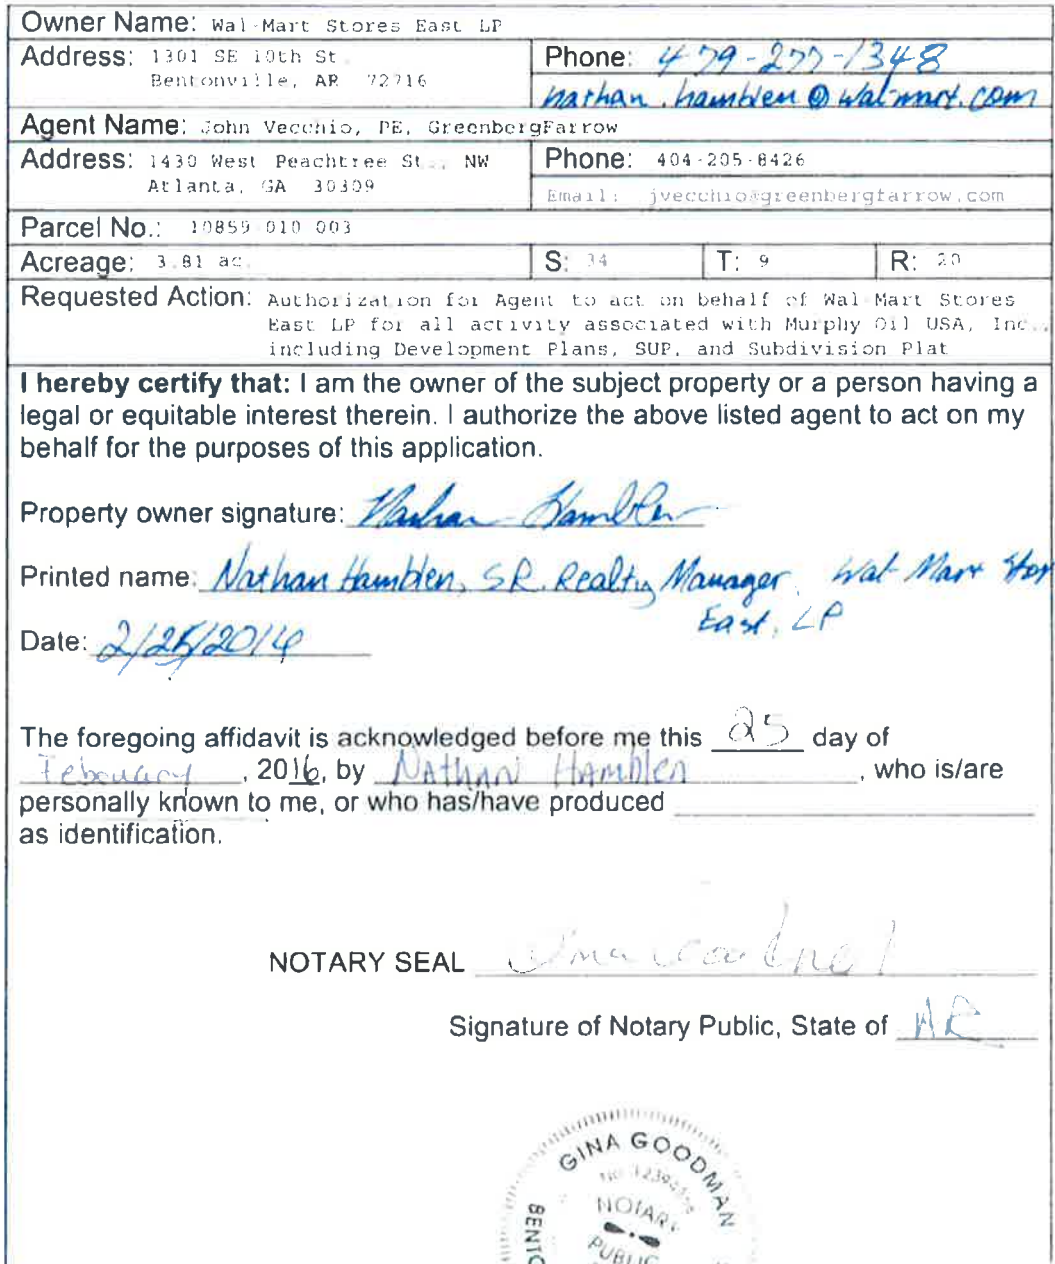 Owner Name: Wal-Mart Stores East LP
Address: 1301 SE 10th St
Bentonville, AR 72716
Phone: 479-277-1348
nathan.hamblen@wal-mart.com
Agent Name: John Vecchio, PE, GreenbergFarrow
Address: 1430 West Peachtree St., NW
Atlanta, GA 30309
Phone: 404-205-8426
Email: jvecchio@greenbergfarrow.com
Parcel No.: 10859 010 003
Acreage: 3.81 ac. S: 34 T: 9 R: 20
Requested Action: Authorization for Agent to act on behalf of Wal Mart Stores
East LP for all activity associated with Murphy Oil USA, Inc.,
including Development Plans, SUP, and Subdivision Plat
I hereby certify that: I am the owner of the subject property or a person having a
legal or equitable interest therein. I authorize the above listed agent to act on my
behalf for the purposes of this application.
Property owner signature: Nathan Hamblen
Printed name: Nathan Hamblen, SR. Realty Manager, Wal-Mart Stor
East, LP
Date: 2/25/2016
The foregoing affidavit is acknowledged before me this 25 day of
February, 2016, by Nathan Hamblen, who is/are
personally known to me, or who has/have produced
as identification.
NOTARY SEAL
Signature of Notary Public, State of AR
GINA GOODMAN
NOTARY
PUBLIC
BENTO